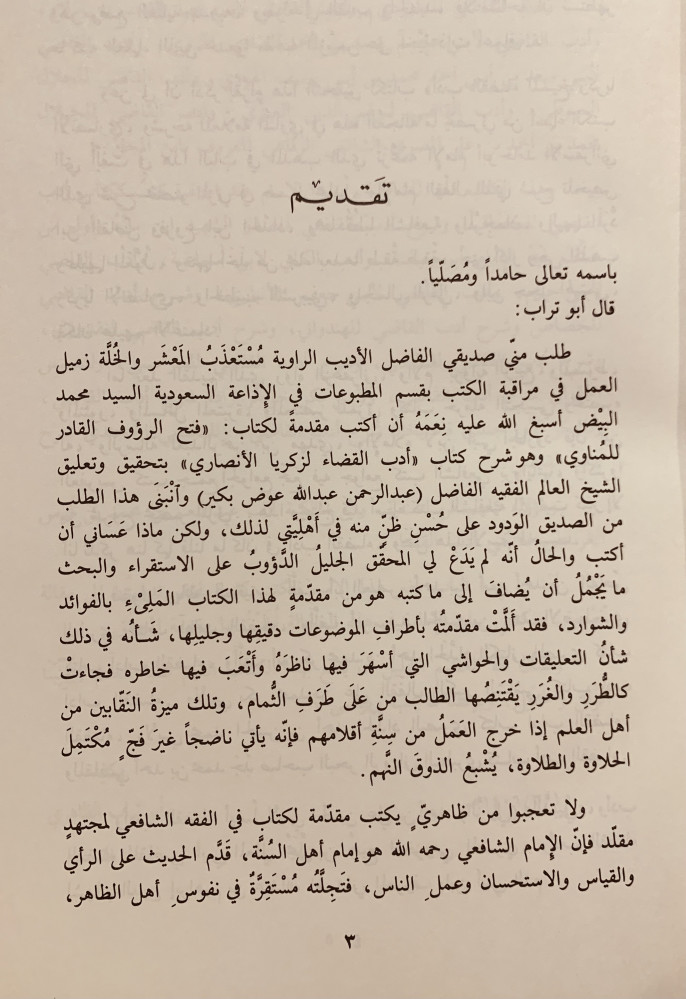 تقديم
باسمه تعالى حامداً ومُصَلّياً.
قال أبو تراب:
طلب منيّ صديقي الفاضل الأديب الراوية مُسْتَعْذَبُ المَعْشَر والخُلَّة زميل
العمل في مراقبة الكتب بقسم المطبوعات في الإذاعة السعودية السيد محمد
البِيْض أسبغ الله عليه نِعَمَهُ أن أكتب مقدمةً لكتاب: «فتح الرؤوف القادر
للمُناوي» وهو شرح كتاب «أدب القضاء لزكريا الأنصاري» بتحقيق وتعليق
الشيخ العالم الفقيه الفاضل (عبدالرحمن عبدالله عوض بكير) وٱنْبَنَى هذا الطلب
من الصديق الوَدود على حُسْنِ ظنٍّ منه في أَهْلِيَّتي لذلك، ولكن ماذا عَسَاني أن
أكتب والحالُ أنّه لم يَدَعْ لي المحقّق الجليلُ الدَّؤوبُ على الاستقراء والبحث
ما يَجْمُلُ أن يُضافَ إلى ما كتبه هو من مقدّمةٍ لهذا الكتاب المَلِيْءِ بالفوائد
والشوارد، فقد أَلَمَّتْ مقدّمتُه بأطرافِ الموضوعات دقيقِها وجليلِها، شَأنُه في ذلك
شأنُ التعليقات والحواشي التي أسْهَرَ فيها ناظرَهُ وأَتْعَبَ فيها خاطره فجاءتْ
كالطُّرَرِ والغُرَرِ يَقْتَنِصُها الطالب من عَلَى طَرَفِ الثُّمام، وتلك ميزةُ النَقّابين من
أهل العلم إذا خرج العَمَلُ من سِنَّةِ أقلامهم فإنّه يأتي ناضجاً غيرَ فَجٍّ مُكْتَمِلَ
الحلاوة والطلاوة، يُشْبعُ الذوقَ النَّهم.
ولا تعجبوا من ظاهريٍّ يكتب مقدّمة لكتابٍ في الفقه الشافعي لمجتهدٍ
مقلّد فإنّ الإمام الشافعي رحمه الله هو إمام أهل السُنَّة، قَدَّم الحديث على الرأي
والقياس والاستحسان وعملِ الناس، فتَجِلَّتُه مُسْتَقِرَّةٌ في نفوسِ أهل الظاهر،
٣